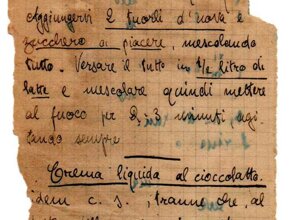 Aggiungervi 2 tuorli d'uova e
zucchero a piacere, mescolando
tutto. Versare il tutto in 1/2 litro di
latte e mescolare quindi mettere
al fuoco per 2, 3 minuti, agi
tando sempre
Crema liquida al cioccolatto.
Idem c. s., tranne che, al